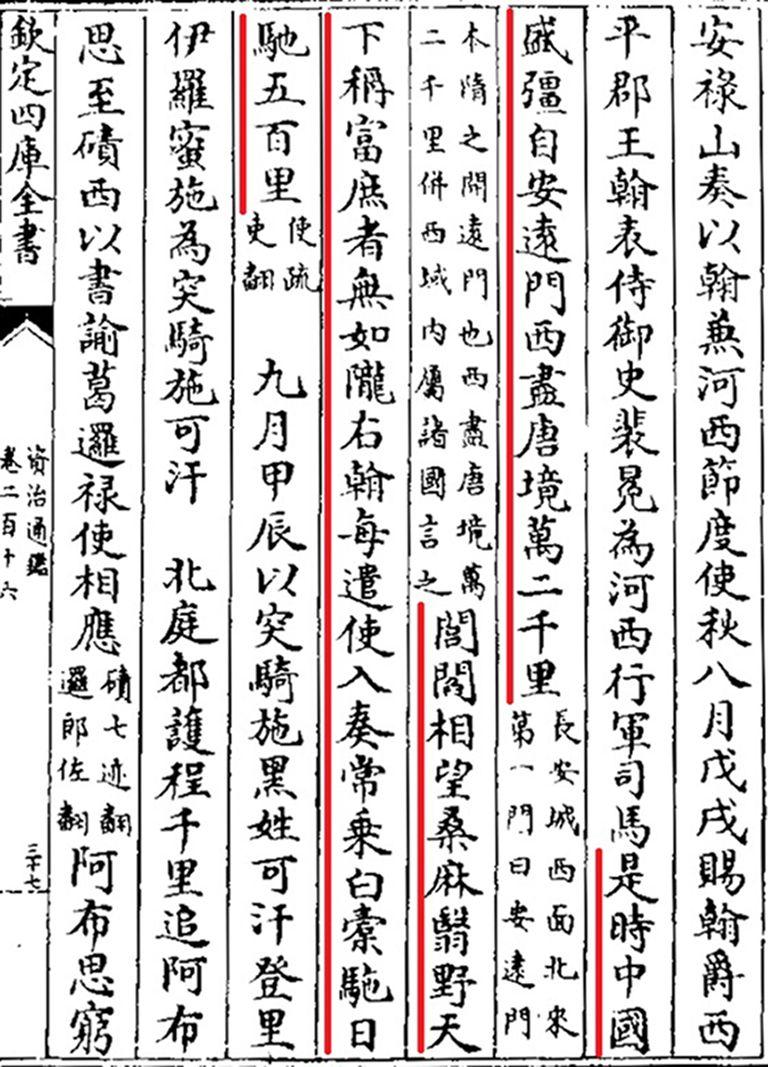 安祿山奏以翰兼河西節度使秋八月戊戌賜翰爵西
平郡王翰表侍御史裴冕為河西行軍司馬是時中國
盛彊自安遠門西盡唐境萬二千里長安城西面北來第一門曰安遠門
本隋之開遠門也西盡唐境萬二千里併西域内屬諸國言之閭閻相望桑麻翳野天
下稱富庶者無如隴右翰每遣使入奏常乗白橐駞日
馳五百里使疏吏翻 九月甲辰以突騎施黑姓可汗登里
伊羅蜜施為突騎施可汗 北庭都護程千里追阿布
思至磧西以書諭葛邏禄使相應磧七迹翻邏郎佐翻阿布思窮
欽定四庫全書
資治通鑑
卷二百十六
三十七